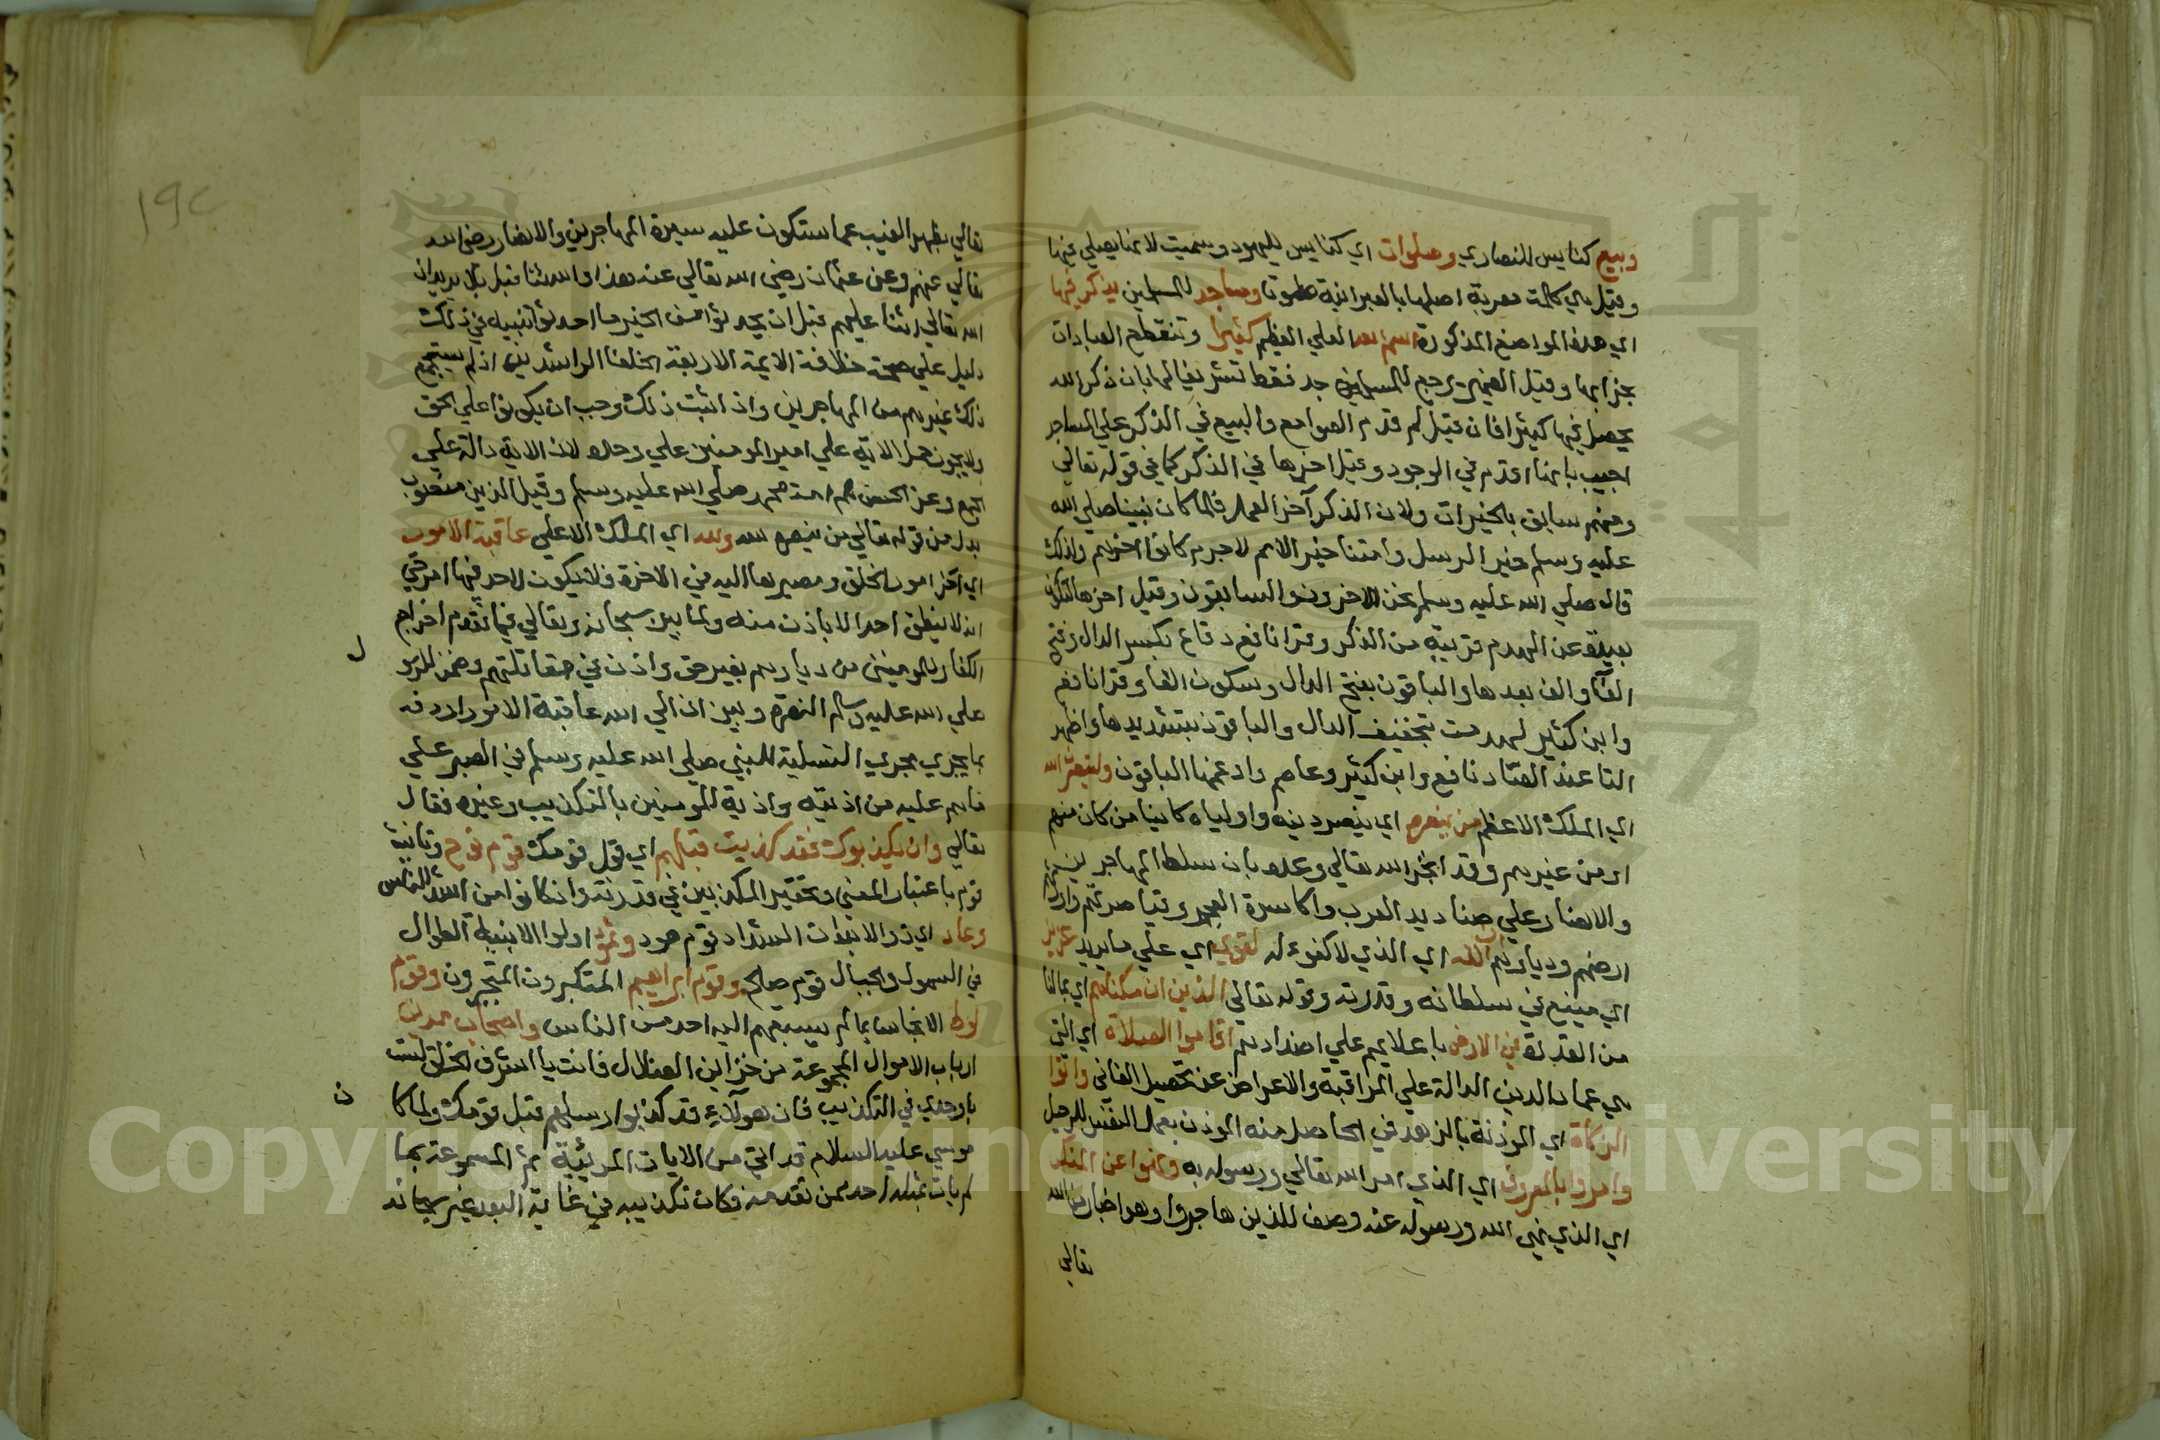 وبيع كنايس للنصاري وصلوات اي كنايس لليهود وسميت لانها يصلي فيها
وقيل هي كلمة معربة اصلها بالعبرانية صلوتا ومساجد للمسلمين يذكر فيها
اي هذه المواضع المذكورة اسم الله العلي العظيم كثيرا وتنقطع العبادات
بخرابها وقيل الضمير يرجع للمساجد فقط تشريفا لها بان ذكر الله
يحصل فيها كثيرا فان قيل لم قدم الصوامع والبيع في الذكر علي المساجد
اجيب بانها اقدم في الوجود وقيل اخرها في الذكر كما في قوله تعالي
ومنهم سابق بالخيرات ولان الذكر آخر العمل فلما كان نبينا صلي الله
عليه وسلم خير الرسل وامتنا خير الامم لا جرم كانوا اخرهم ولذلك
قال صلي الله عليه وسلم نحن الاخرون السابقون وقيل اخرها لتكون
بعيدة عن الهدم قريبة من الذكر وقرا نافع دفاع بكسر الدال وفتح
الفا والف بعدها والباقون بفتح الدال وسكون الفا وقرا نافع
وابن كثير لهدمت بتخفيف الدال والباقون بتشديدها واظهر
التا عند الصاد نافع وابن كثير وعاصم وادغمها الباقون ولينصرن الله
اي الملك الاعظم من ينصره اي ينصر دينه واولياه كاينا من كان منهم
او من غيرهم وقد انجز الله تعالي وعده بان سلط المهاجرين
والانصار علي صناديد العرب واكاسرة العجم وقياصرتهم واورثهم
ارضهم وديارهم ان الله اي الذي لا كفوء له لقوي اي علي ما يريد عزيز
اي منيع في سلطانه وقدرته وقوله تعالي الذين ان مكناهم اي بما لنا
من القدرة في الارض باعلايهم علي اضدادهم اقاموا الصلاة اي التي
هي عماد الدين الدالة علي المراقبة والاعراض عن تحصيل الفاني واتوا
الزكاة اي الموذنة بالزهد في الحاصل منه الموذن بعمل النفس للرحيل
وامروا بالمعروف اي الذي امر الله تعالي ورسوله به ونهوا عن المنكر
اي الذي نهي الله ورسوله عنه وصف للذين هاجروا وهو اخبار من الله
تعالي
١٩٢
تعالي بظهر الغيب عما ستكون عليه سيرة المهاجرين والانصار رضي الله
تعالي عنهم وعن عثمان رضي الله تعالي عنه هذا والله ثنا قبل بلا يريد ان
الله تعالي اثنا عليهم قبل ان يحدثوا من الخير ما احدثوا تنبيه في ذلك
دليل علي صحة خلافة الايمة الاربعة الخلفا الراشدين اذ لم يستجمع
ذلك غيرهم من المهاجرين واذا ثبت ذلك وجب ان يكونوا علي الحق
ولا يجوز حمل الاية علي امير المومنين علي وحده لان الاية دالة علي
الجمع وعن الحسن هم امة محمد صلي الله عليه وسلم وقيل الذين منصوب
بدل من قوله تعالي من ينصره لله ولله اي الملك الاعلي عاقبة الامور
اي آخر امور الخلق ومصيرها اليه في الاخرة فلا يكون لاحد فيها امر حتي
انه لا ينطق احد الا باذن منه ولما بين سبحانه وتعالي فيما تقدم اخراج
الكفار للمومنين من ديارهم بغير حق واذن في مقاتلتهم وضمن للرسول
صلي الله عليه وسلم النصرة وبين ان الي الله عاقبة الامور اردفه
بما يجري مجري التسلية للنبي صلي الله عليه وسلم في الصبر علي
ما هم عليه من اذيته واذية المومنين بالتكذيب وغيره فقال
تعالي وان يكذبوك فقد كذبت قبلهم اي قبل قومك قوم نوح وتانيث
قوم باعتبار المعني وتحقير المكذبين في قدرته وان كانوا من اشد الناس
وعاد اي ذو الابدان الشداد قوم هود وثمود اولوا الابنية الطوال
في السهول والجبال قوم صالح وقوم ابراهيم المتكبرون المتجبرون وقوم
لوط الانجاس بما لم يسبقهم اليه احد من الناس واصحاب مدين
ارباب الاموال المجموعة من خزاين الضلال فانت يا اشرف الخلق لست
باوحدي في التكذيب فان هولاء قد كذبوا رسلهم قبل قومك ولما كان
موسي عليه السلام قد اتي من الايات المرئية ثم المسموعة بما
لم يات بمثله احد ممن تقدمه فكان تكذيبه في غاية البعد غير سبحانه
Copyright © King Saud University